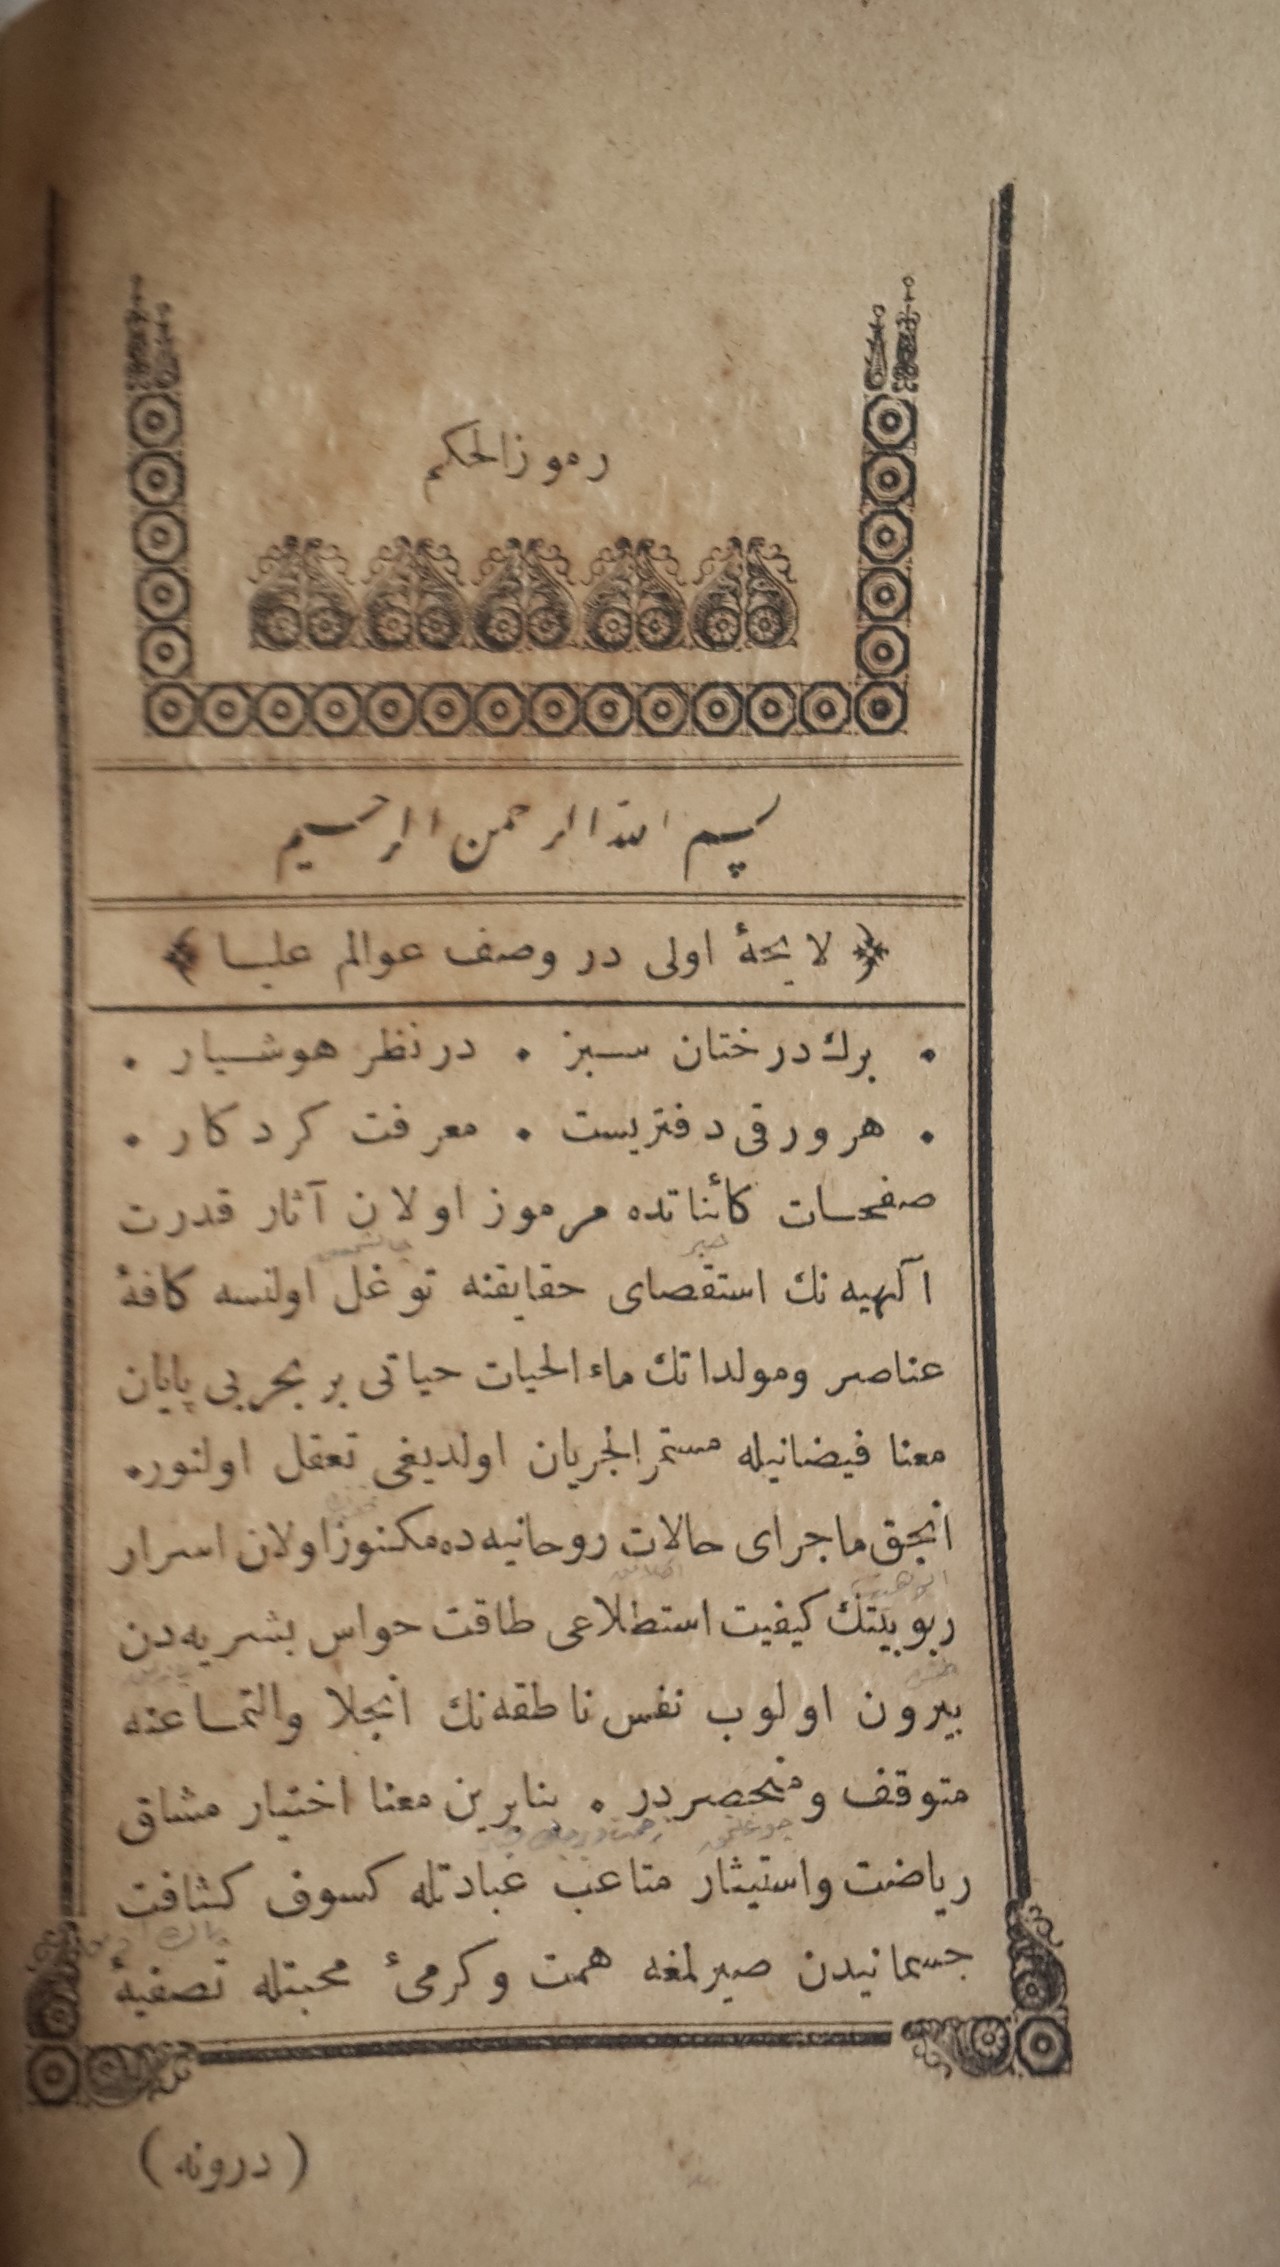 رموز الحكم
بسم الله الرحمن الرحيم
﴿ لایحۀ اولی در وصف عوالم علیا ﴾
• برك درختان سبز • در نظر هوشیار •
• هر ورقی دفتریست • معرفت کردکار •
صفحات کائناتده مرموز اولان آثار قدرت
آلهیه نك استقصای حقایقنه توغل اولنسه کافۀ
عناصر ومولداتك ماء الحیات حیاتی بر بحر بی پایان
معنا فیضانیله مستمر الجریان اولدیغی تعقل اولنور•
انجق ماجرای حالات روحانیه ده مکنوز اولان اسرار
ربوبیتك کیفیت استطلاعی طاقت حواس بشریه دن
بیرون اولوب نفس ناطقه نك انجلا والتماعنه
متوقف ومنحصردر • بنابرین معنا اختیار مشاق
ریاضت واستیثار متاعب عبادتله کسوف کثافت
جسمانیدن صیرلمغه همت وکرمیٔ محبتله تصفیۀ
( درونه )